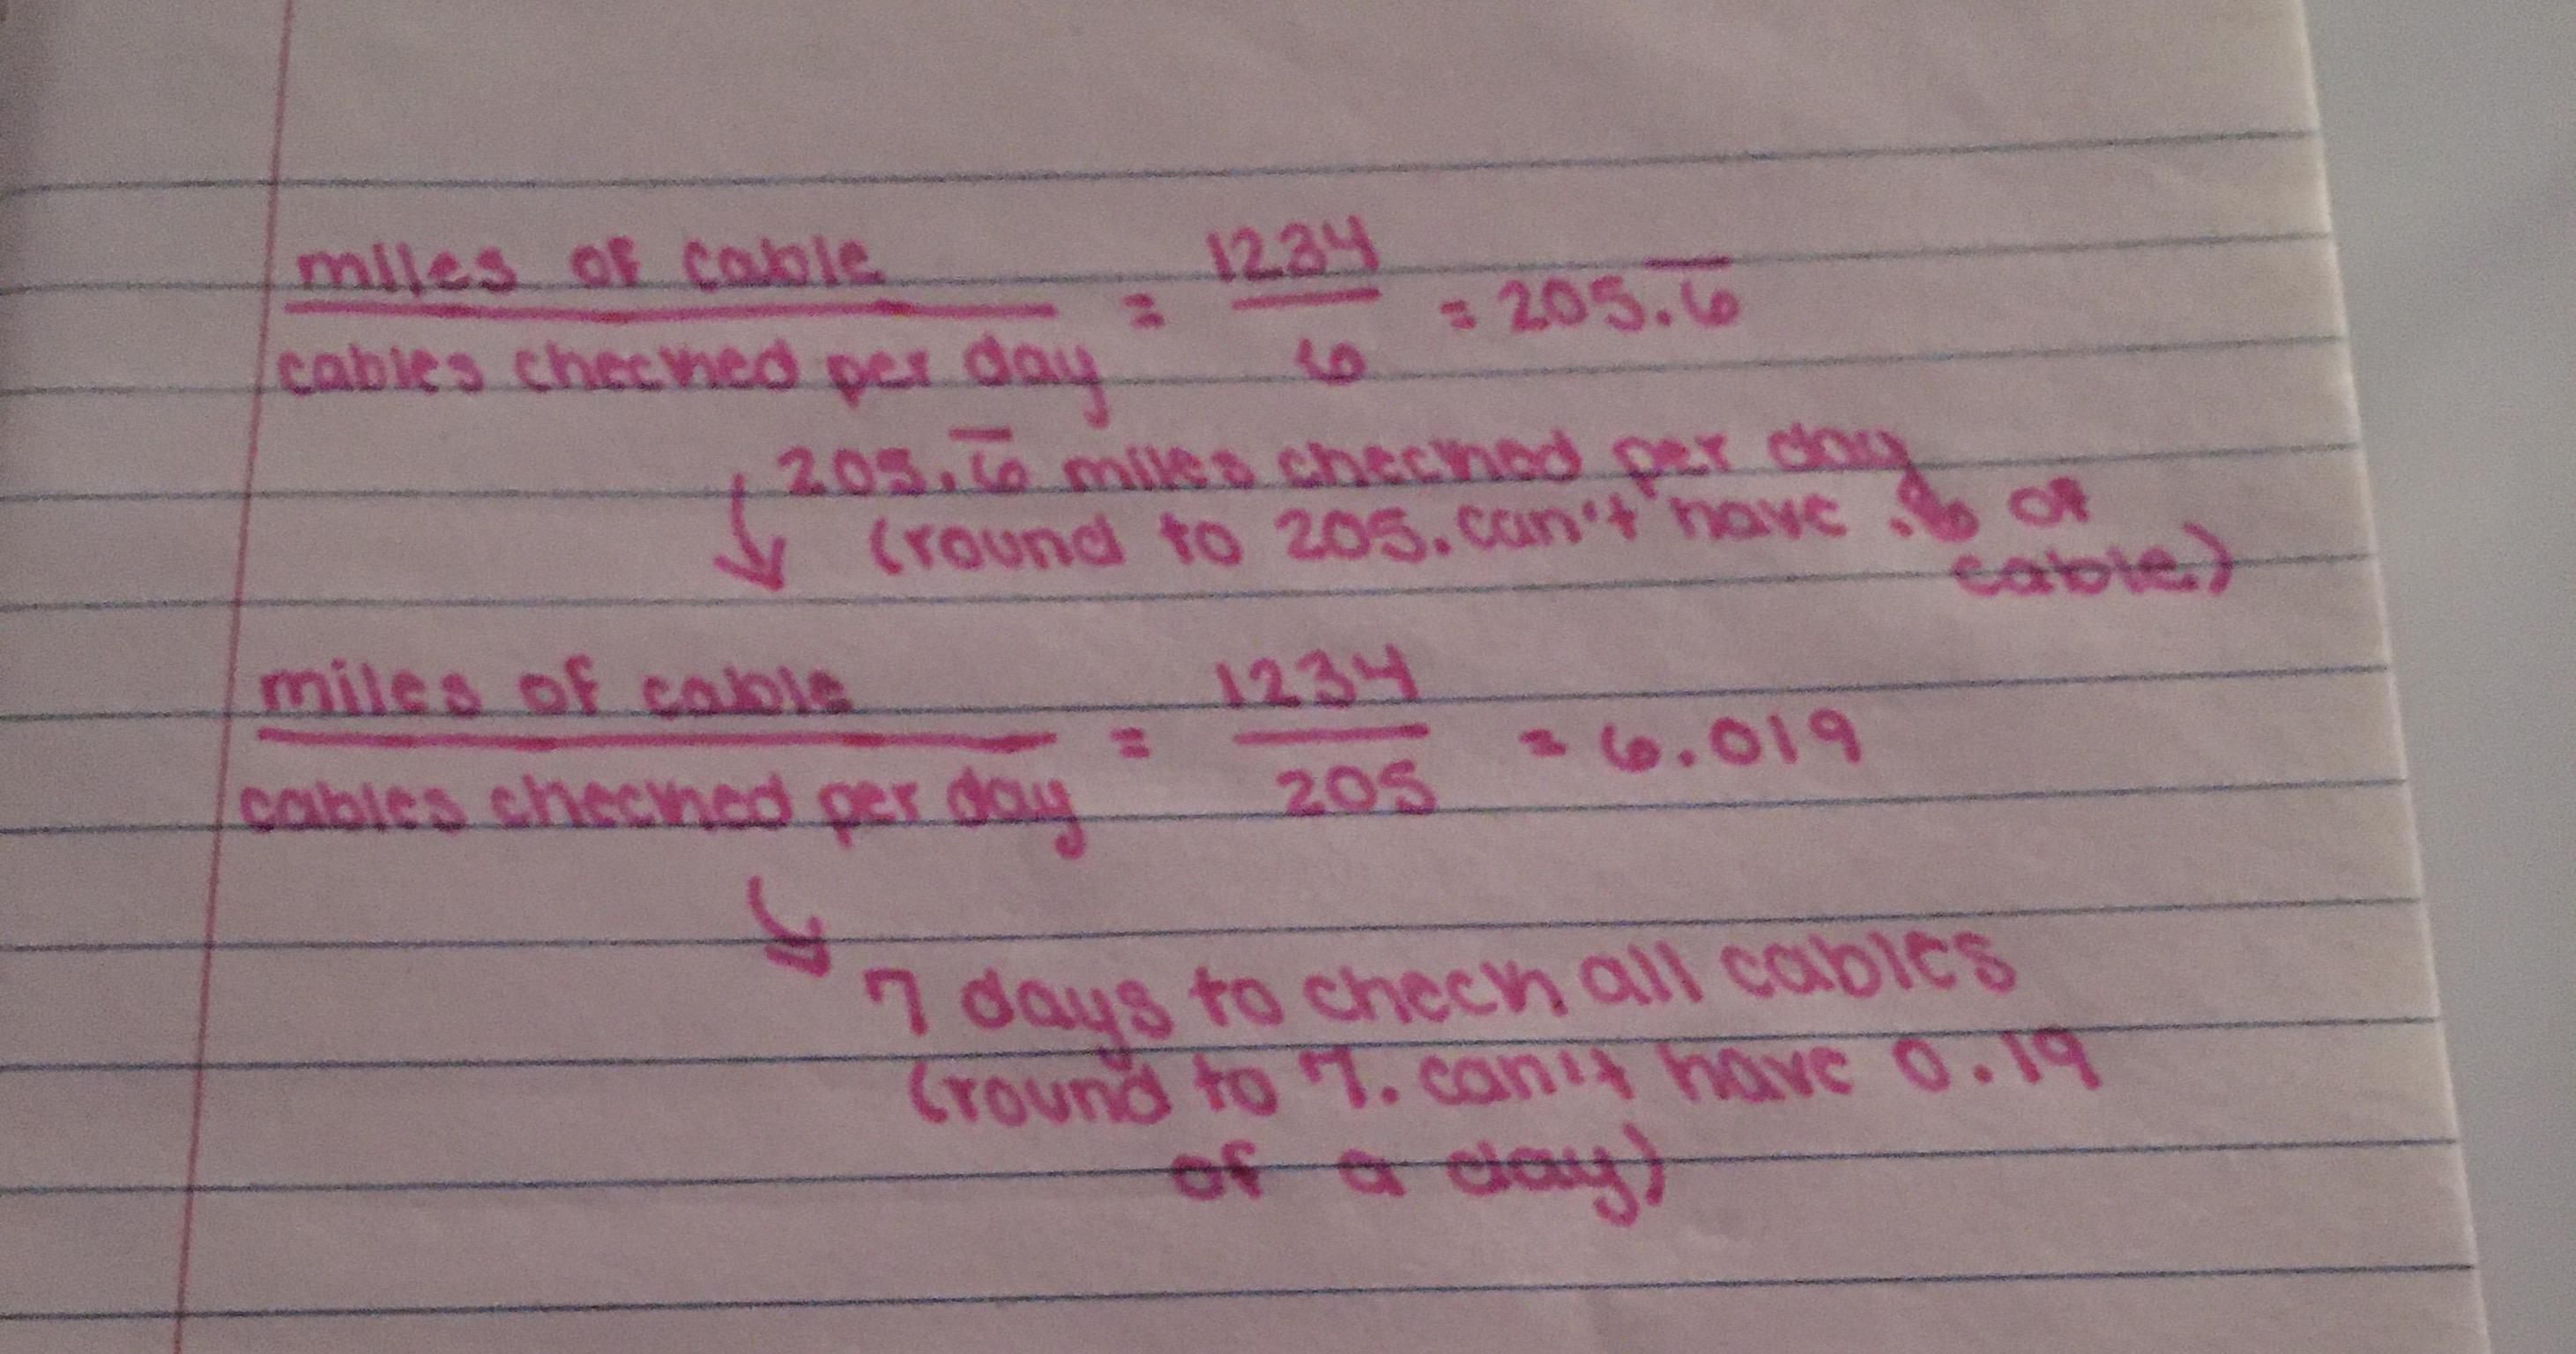 miles of cable
cables checked per day = 1234 / 6 = 205.6̅
205.6̅ miles checked per day
(round to 205. can't have .6 of
cable)
miles of cable
cables checked per day = 1234 / 205 = 6.019
7 days to check all cables
(round to 7. can't have 0.19
of a day)